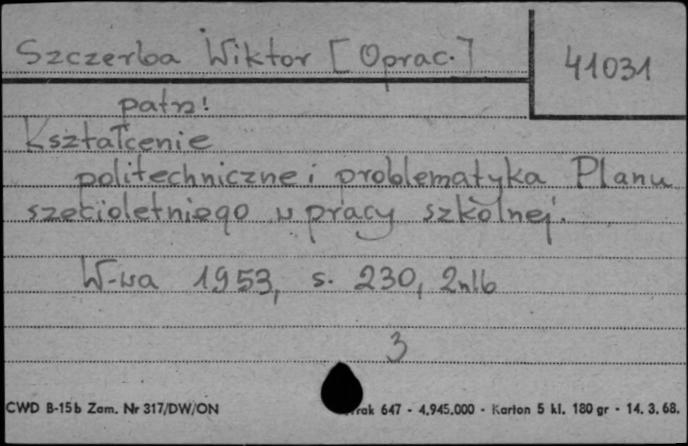 Szczerba Wiktor [Oprac.]
41031
patrz!
Kształcenie
politechniczne i problematyka Planu
sześcioletniego w pracy szkolnej.
W-wa 1953, s. 230, 2nlb
3
CWD B-15b Zam. Nr 317/DW/ON
rak 647 - 4.945.000 - Karton 5 kl. 180 gr - 14. 3. 68.